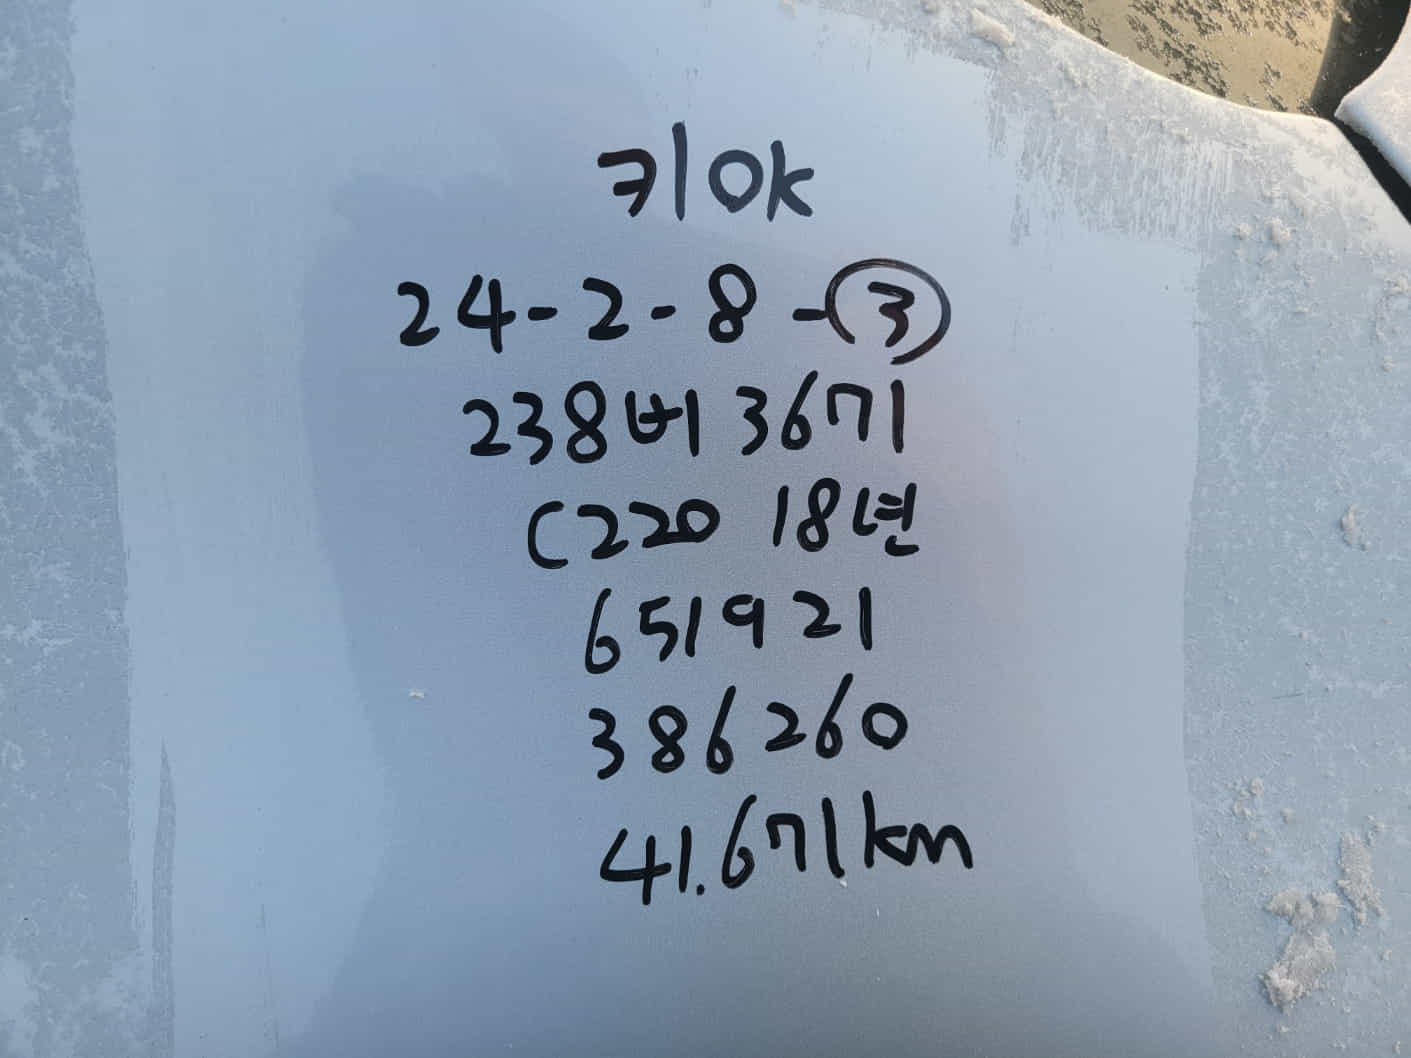 키OK
24-2-8-③
238버3671
C220 18년
651921
386260
41.671km